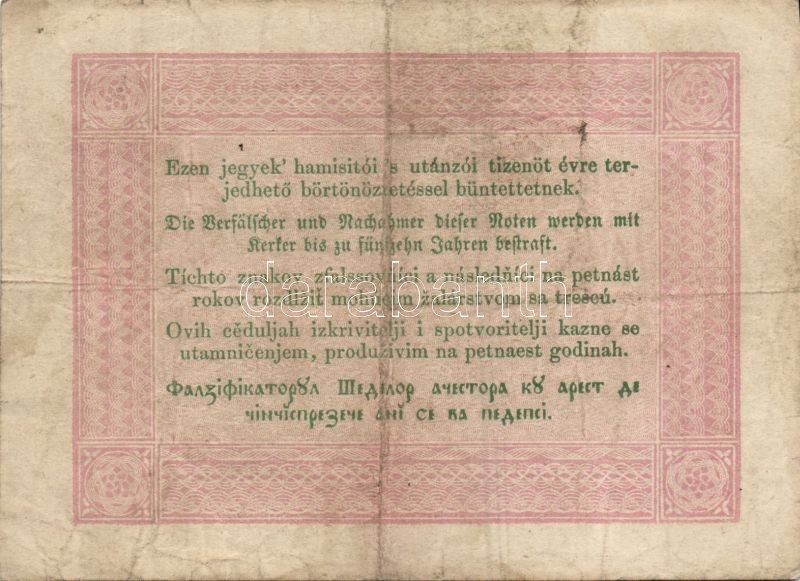 Ezen jegyek’ hamisitói ’s utánzói tizenöt évre ter-
jedhető börtönöztetéssel büntettetnek.
Die Verfälscher und Nachahmer dieser Noten werden mit
Kerker bis zu fünfzehn Jahren bestraft.
Tíchto znakov zfalssovňíci a následňíci na petnást
rokov rozdlžiť mohúcím žalárstvom sa trescú.
Ovih cěduljah izkrivitelji i spotvoritelji kazne se
utamničenjem, produživim na petnaest godinah.
Фалꙁіфікаторꙋл Шеділор ачестора кꙋ арест де
чінчіспреꙁече ані се ва педепсі.
darabanth